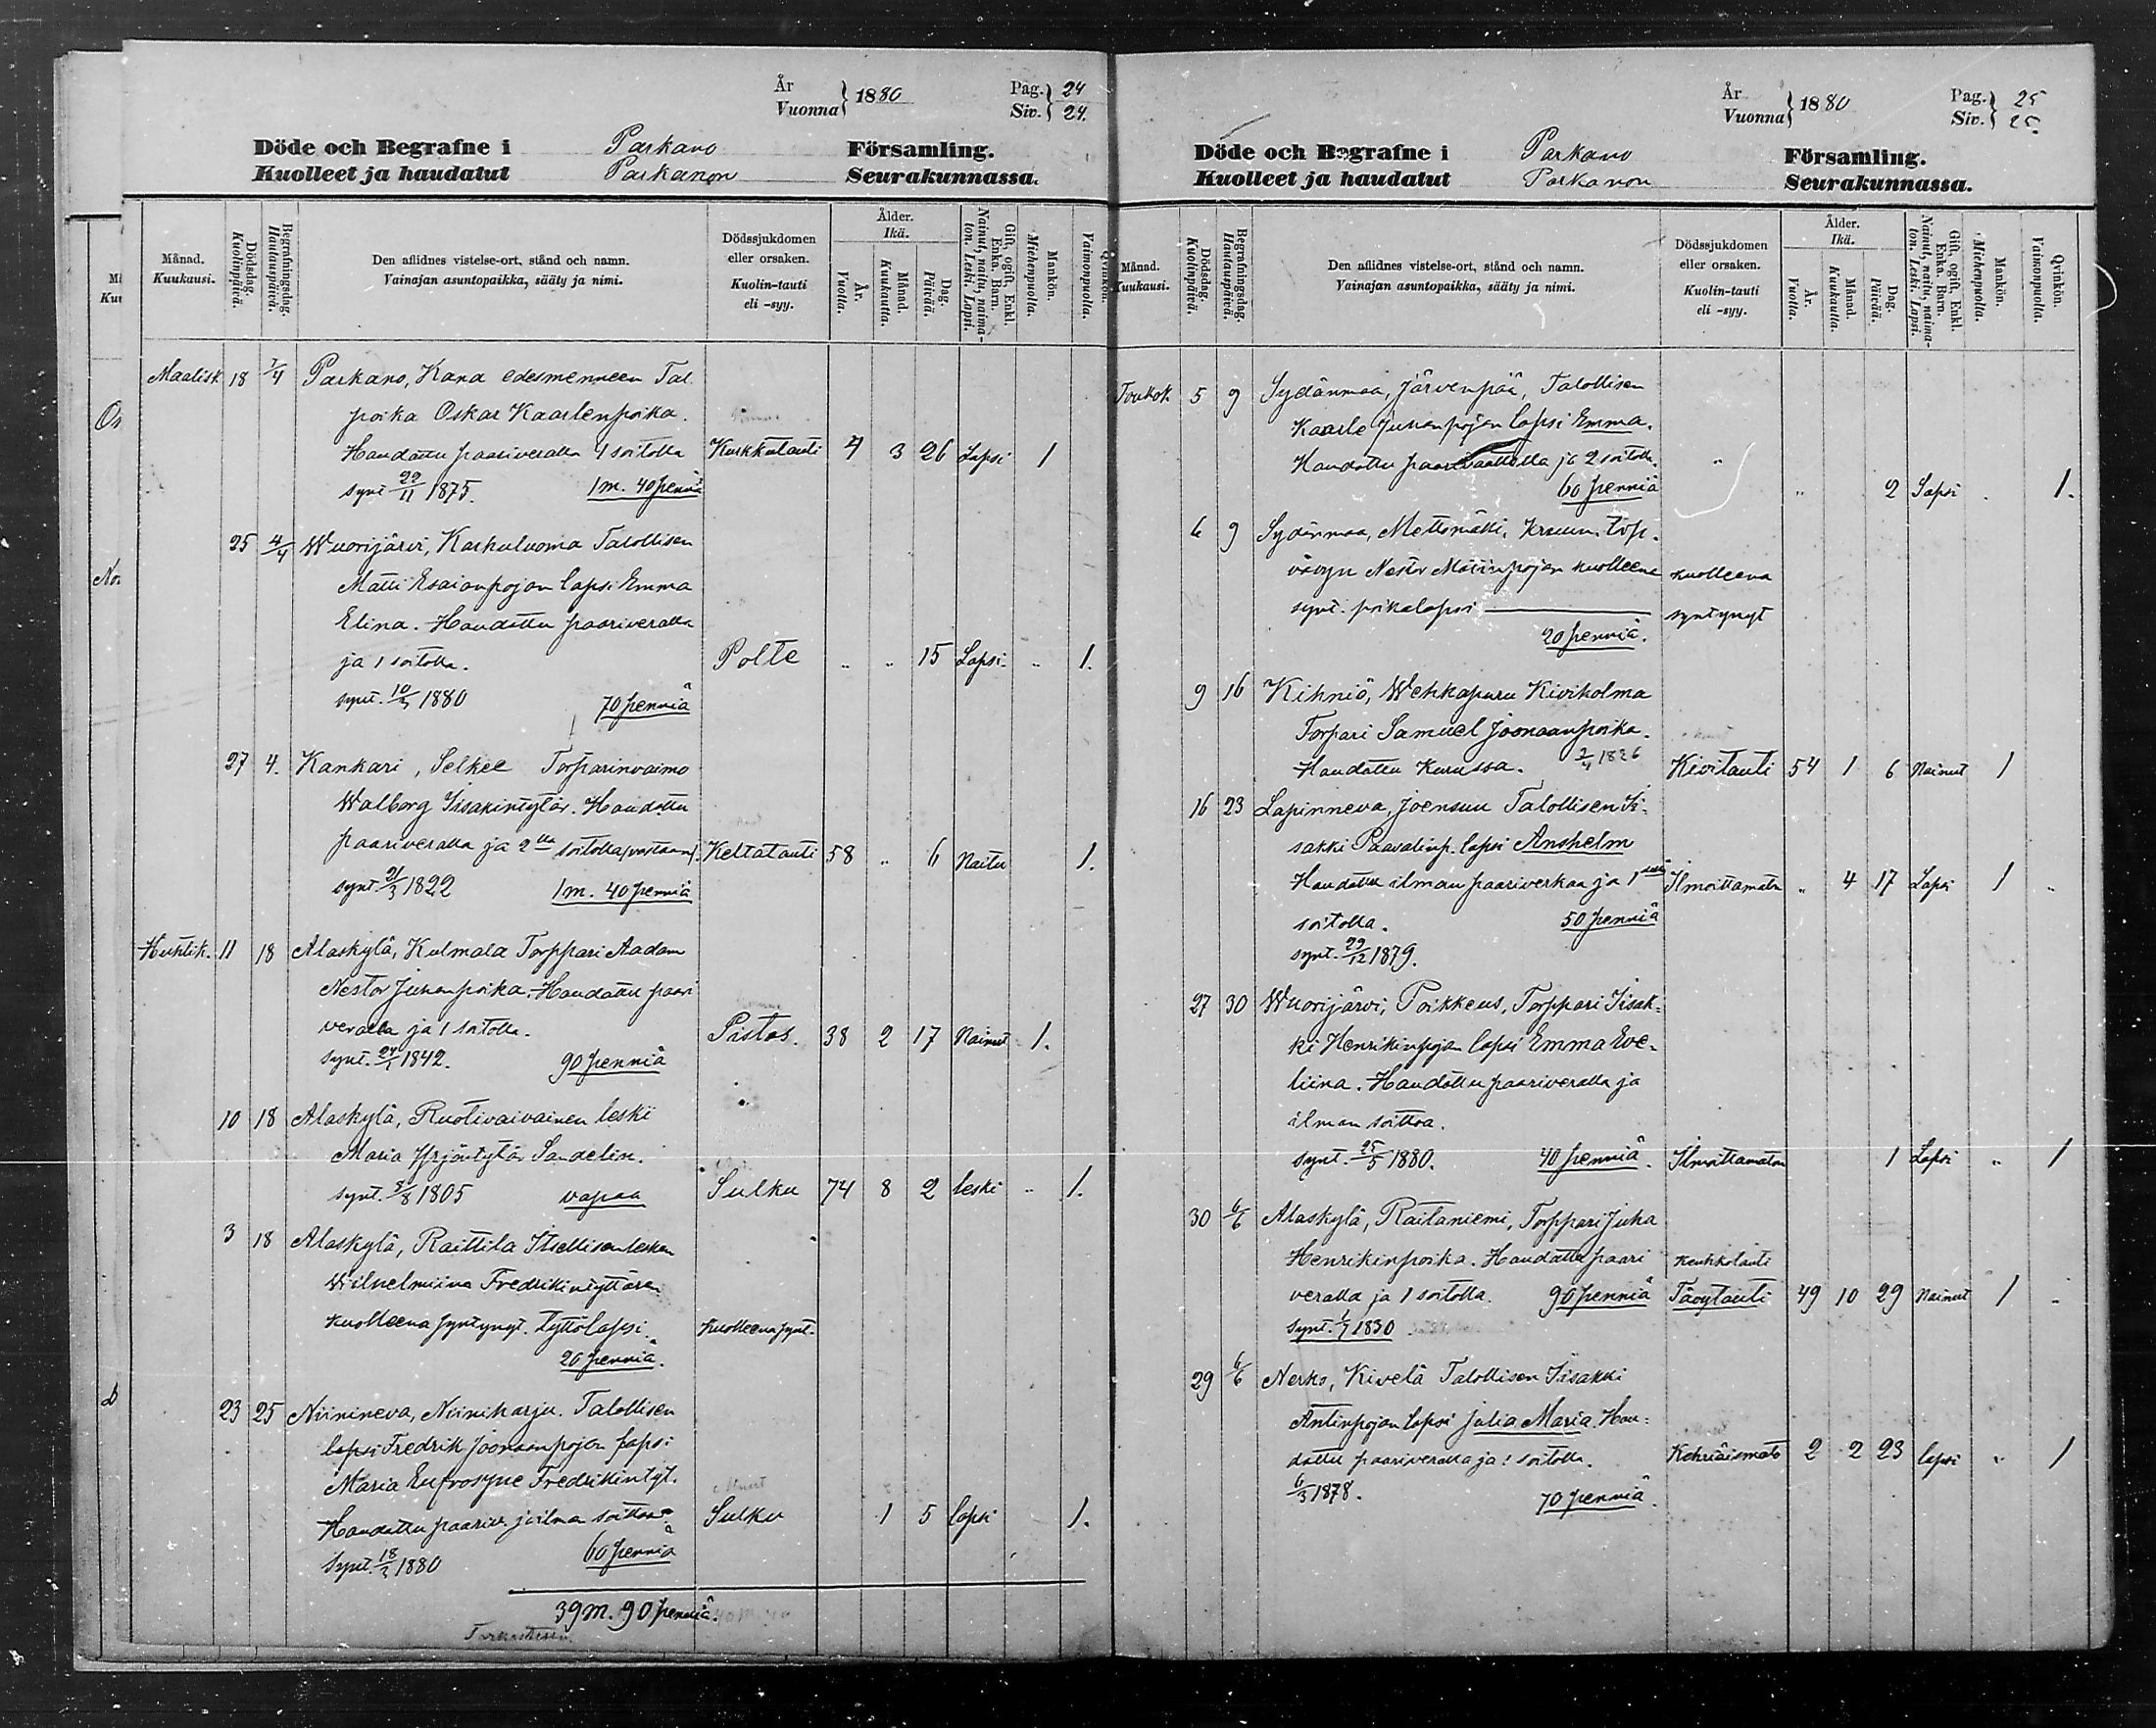 År
Vuonna } 1880
Pag. } 24
Siv. } 24.
Döde och Begrafne i Parkano Församling.
Kuolleet ja haudatut Parkanon Seurakunnassa.
Månad. Kuukausi.
Dödsdag. Kuolinpäivä.
Begrafningsdag. Hautauspäivä.
Den aflidnes vistelse-ort, stånd och namn.
Vainajan asuntopaikka, sääty ja nimi.
Dödssjukdomen eller orsaken.
Kuolin-tauti eli -syy.
Ålder. Ikä.
År. Vuotta.
Månad. Kuukautta.
Dag. Päivää.
Gift, ogift, Enkl. Enka. Barn.
Nainut, naitu, naimaton. Leski. Lapsi.
Mankön. Miehenpuolta.
Qvinkön. Vaimonpuolta.
Maalisk. 18 7/4 Parkano, Kana edesmenneen Tal.
poika Oskar Kaarlenpoika.
Haudattu paariveralla 1 soitolla Kurkkutauti 4 3 26 Lapsi 1
synt 22/11 1875. 1 m. 40 penniä
25 4/4 Wuorijärvi, Kaskuluoma Talollisen
Matti Esaianpojan lapsi Emma
Elina. Haudattu paariveralla
ja 1 soitolla. Polte .. .. 15 Lapsi .. 1.
synt. 10/3 1880 70 penniä
27 4. Kankari, Selkee Torparinvaimo
Walborg Iisakintytär. Haudattu
paariveralla ja 2lla soitolla Keltatauti 58 .. 6 Naitu 1.
synt. 21/3 1822 1 m. 40 penniä
Huhtik. 11 18 Alaskylä, Kulmala Torppari Aadam
Nestor Juhanpoika. Haudattu paari
veralla ja 1 soitolla. Pistos. 38 2 17 Nainut 1.
synt. 24/1 1842. 90 penniä
10 18 Alaskylä, Ruotivaivainen leski
Maria Yrjöntytär Sandelin.
synt. 8/8 1805 vapaa Sulku 74 8 2 leski .. 1.
3 18 Alaskylä, Raittila Itsellisen lesken
Wilhelmiina Fredrikintyttären
kuolleena syntynyt. tyttölapsi. Kuolleena synt.
20 penniä.
23 25 Niinineva, Niiniharju. Talollisen
lapsi Fredrik Joonaanpojan lapsi
Maria Eufrosyne Fredrikintyt.
Haudattu paariv. ja ilman soittoa Sulku 1 5 lapsi 1.
Synt. 18/3 1880 60 penniä
39 m. 90 penniä.
År
Vuonna } 1880
Pag. } 25
Siv. } 25.
Döde och Begrafne i Parkano Församling.
Kuolleet ja haudatut Parkanon Seurakunnassa.
Månad. Kuukausi.
Dödsdag. Kuolinpäivä.
Begrafningsdag. Hautauspäivä.
Den aflidnes vistelse-ort, stånd och namn.
Vainajan asuntopaikka, sääty ja nimi.
Dödssjukdomen eller orsaken.
Kuolin-tauti eli -syy.
Ålder. Ikä.
År. Vuotta.
Månad. Kuukautta.
Dag. Päivää.
Gift, ogift, Enkl. Enka. Barn.
Nainut, naitu, naimaton. Leski. Lapsi.
Mankön. Miehenpuolta.
Qvinkön. Vaimonpuolta.
Toukok 5 9 Sydänmaa, Järvenpää, Talollisen
Kaarle Juhanpojan lapsi Emma.
Haudattu ja 2 soitolla.
60 penniä .. 2 Lapsi . 1.
6 9 Sydänmaa, Mettomäki, Kruun. torp.
vävyn Nestor Matinpojan kuolleena kuolleena
synt. poikalapsi syntynyt
20 penniä.
9 16 Kihniö, Wehkapuru Kiviholma
Torpari Samuel Joonaanpoika.
Haudattu Kurussa. 3/4 1826 Kivitauti 54 1 6 Nainut 1
16 23 Lapinneva, Joensuu Talollisen Ii-
sakki Paavalinp. lapsi Anshelm
Haudattu ilman paariverkaa ja 1 Ilmoittamata .. 4 17 Lapsi 1 ..
soitolla. 50 penniä
synt. 29/12 1879.
27 30 Wuorijärvi, Poikkeus, Torppari Iisak-
ki Henrikinpojan lapsi Emma Eve-
liina. Haudattu paariveralla ja
ilman soittoa.
synt. 25/5 1880. 40 penniä. Ilmoittamaton 1 Lapsi .. 1
30 6/6 Alaskylä, Raitaniemi, Torppari Juha
Henrikinpoika. Haudattu paari Keuhkotauti
veralla ja 1 soitolla. 90 penniä 49 10 29 Nainut 1 ..
synt. 1/7 1830
29 6/6 Nerko, Kivelä Talollisen Iisakki
Antinpojan lapsi Julia Maria. Hau-
dattu paariveralla ja 1 soitolla. 2 2 23 lapsi .. 1
6/3 1878. 70 penniä.